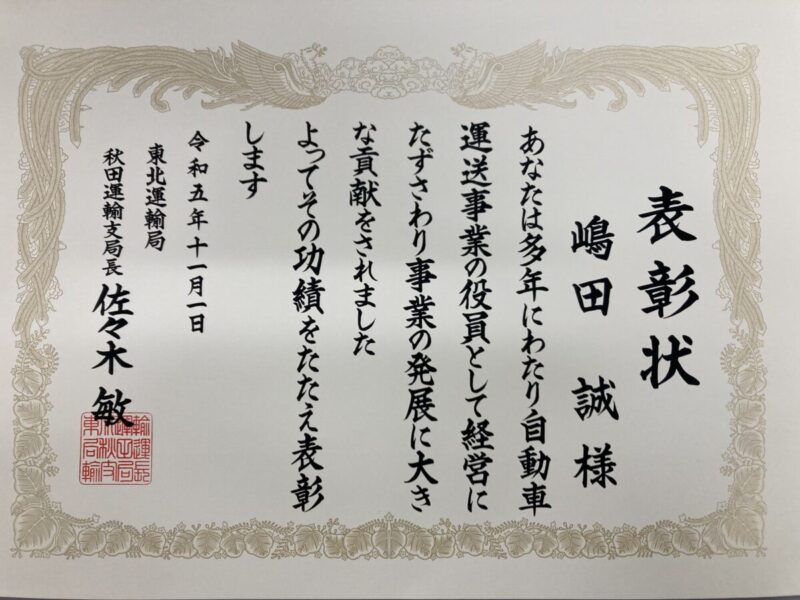 表彰状
嶋田 誠様
あなたは多年にわたり自動車
運送事業の役員として経営に
たずさわり事業の発展に大き
な貢献をされました
よってその功績をたたえ表彰
します
令和五年十一月一日
東北運輸局
秋田運輸支局長 佐々木 敏